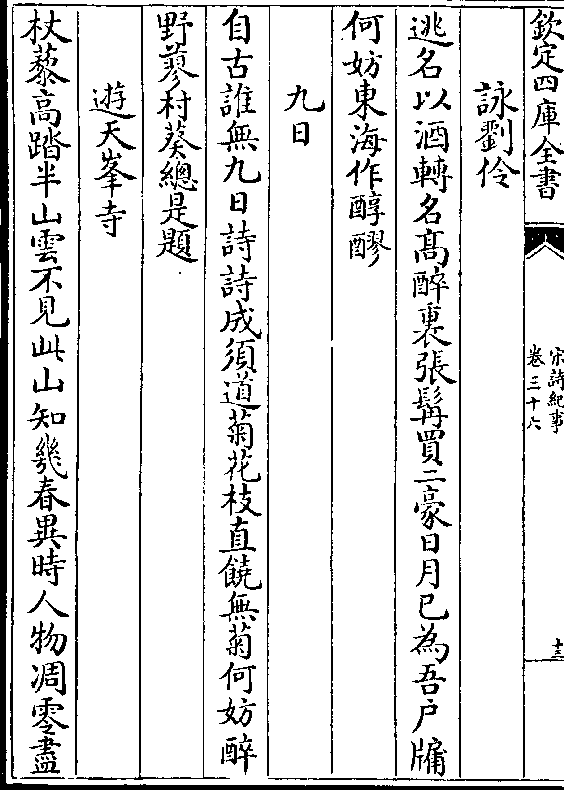 欽定四庫全書
宋詩紀事
卷三十六
十三
詠劉伶
逃名以酒轉名髙醉裏張髯買二豪日月已為吾户牖
何妨東海作醇醪
九日
自古誰無九日詩詩成須道菊花枝直饒無菊何妨醉
野蓼村葵總是題
遊天峯寺
杖藜高踏半山雲不見此山知幾春異時人物凋零盡